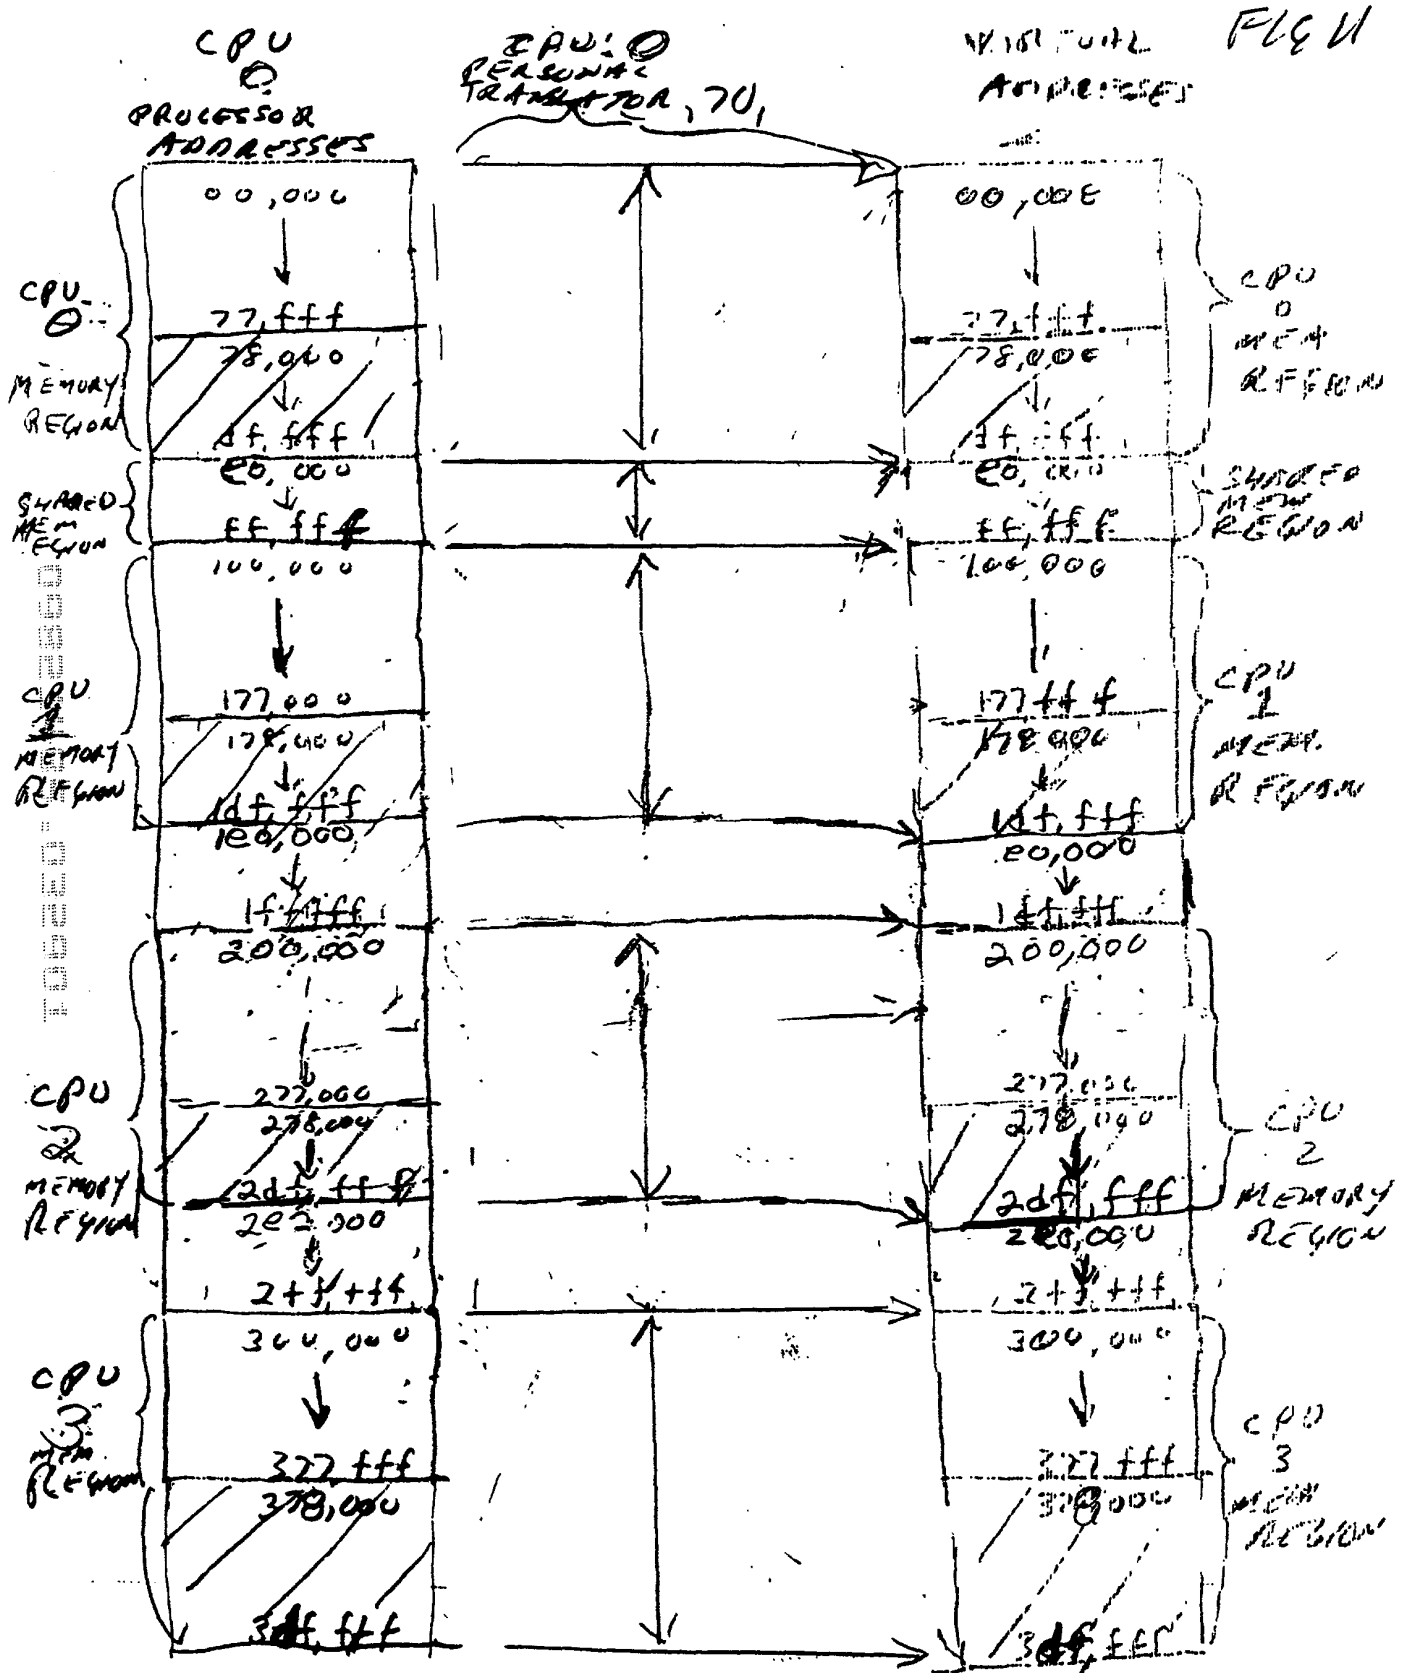 FIG 11
CPU
0
PROCESSOR
ADDRESSES
CPU 0
PERSONAL
TRANSLATOR, 70,
VIRTUAL
ADDRESSES
CPU
0
MEMORY
REGION
SHARED
MEM
REGION
CPU
1
MEMORY
REGION
CPU
2
MEMORY
REGION
CPU
3
MEM.
REGION
00,000
77,fff
78,000
df,fff
e0,000
ff,fff
100,000
177,000
178,000
1df,fff
1e0,000
1ff,fff
200,000
277,000
278,000
2df,fff
2e2,000
2ff,fff
300,000
377,fff
378,000
3df,fff
00,000
77,fff
78,000
df,fff
e0,000
ff,fff
100,000
177fff
178,000
1df,fff
e0,000
200,000
277,000
278,000
2df,fff
2e0,000
2ff,fff
300,000
377,fff
378,000
3df,fff
CPU
0
MEM
REGION
SHARED
MEM
REGION
CPU
1
MEM.
REGION
CPU
2
MEMORY
REGION
CPU
3
MEM
REGION